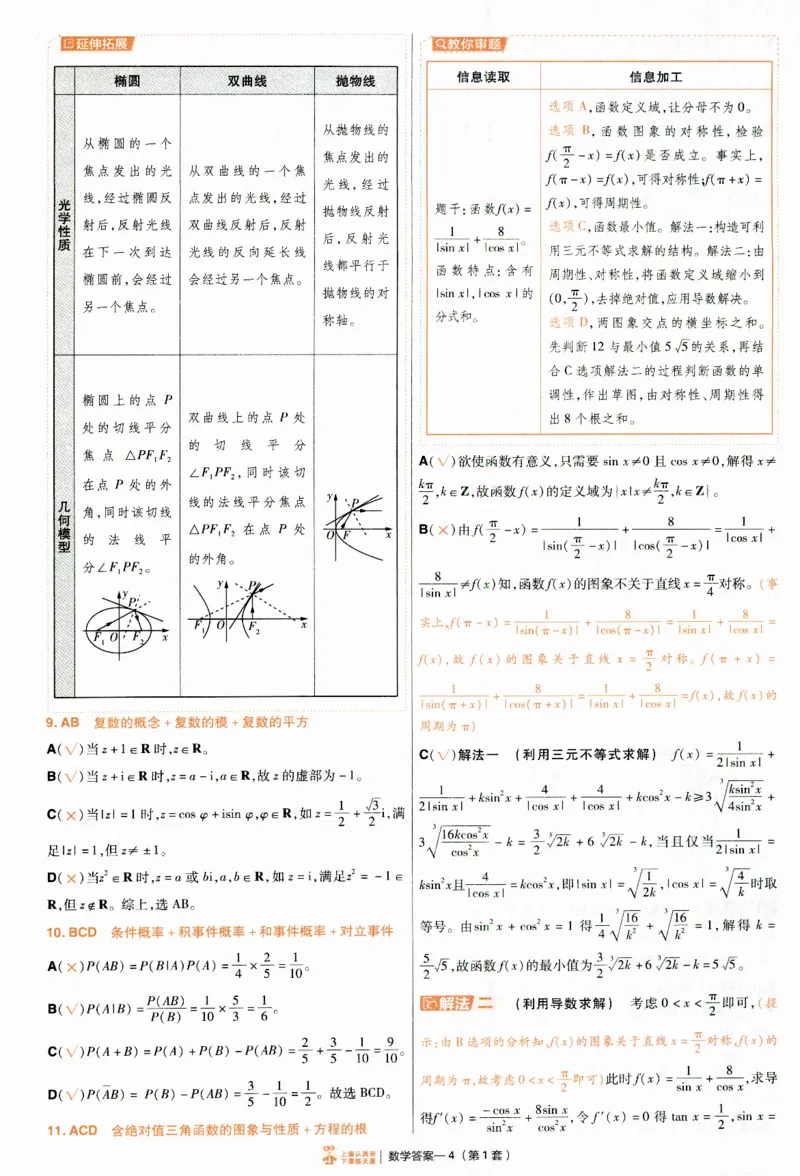 延伸拓展
椭圆 双曲线 抛物线
光学性质
从椭圆的一个
焦点发出的光
线,经过椭圆反
射后,反射光线
在下一次到达
椭圆前,会经过
另一个焦点。
从双曲线的一个焦
点发出的光线,经过
双曲线反射后,反射
光线的反向延长线
会经过另一个焦点。
从抛物线的
焦点发出的
光线,经过
抛物线反射
后,反射光
线都平行于
抛物线的对
称轴。
几何模型
椭圆上的点 P
处的切线平分
焦点 △PF₁F₂
在点 P 处的外
角,同时该切线
的法线平
分∠F₁PF₂。
y P F₁ O F₂ x
双曲线上的点 P 处
的切线平分
∠F₁PF₂,同时该切
线的法线平分焦点
△PF₁F₂ 在点 P 处
的外角。
y P F₁ O F₂ x
y P O F x
9. AB 复数的概念+复数的模+复数的平方
A(√)当 z+1∈R 时,z∈R。
B(√)当 z+i∈R 时,z=a-i,a∈R,故 z 的虚部为-1。
C(×)当|z|=1 时,z=cos φ+isin φ,φ∈R,如 z=1/2+√3/2 i,满
足|z|=1,但 z≠±1。
D(×)当z²∈R 时,z=a 或 bi,a,b∈R,如 z=i,满足z²=-1∈
R,但 z∉R。综上,选 AB。
10. BCD 条件概率+积事件概率+和事件概率+对立事件
A(×)P(AB)=P(B|A)P(A)=1/4×2/5=1/10。
B(√)P(A|B)=P(AB)/P(B)=1/10×5/3=1/6。
C(√)P(A+B)=P(A)+P(B)-P(AB)=2/5+3/5-1/10=9/10。
D(√)P(A̅B)=P(B)-P(AB)=3/5-1/10=1/2。故选 BCD。
11. ACD 含绝对值三角函数的图象与性质+方程的根
教你审题
信息读取 信息加工
题干:函数f(x)=
1/|sin x|+8/|cos x|。
函数特点:含有
|sin x|,|cos x|的
分式和。
选项 A,函数定义域,让分母不为 0。
选项 B,函数图象的对称性,检验
f(π/2-x)=f(x)是否成立。事实上,
f(π-x)=f(x),可得对称性;f(π+x)=
f(x),可得周期性。
选项 C,函数最小值。解法一:构造可利
用三元不等式求解的结构。解法二:由
周期性、对称性,将函数定义域缩小到
(0,π/2),去掉绝对值,应用导数解决。
选项 D,两图象交点的横坐标之和。
先判断 12 与最小值 5√5的关系,再结
合 C 选项解法二的过程判断函数的单
调性,作出草图,由对称性、周期性得
出 8 个根之和。
A(√)欲使函数有意义,只需要 sin x≠0 且 cos x≠0,解得 x≠
kπ/2,k∈Z,故函数f(x)的定义域为{x|x≠kπ/2,k∈Z}。
B(×)由f(π/2-x)=1/|sin(π/2-x)|+8/|cos(π/2-x)|=1/|cos x|+
8/|sin x|≠f(x)知,函数f(x)的图象不关于直线 x=π/4对称。(事
实上,f(π-x)=1/|sin(π-x)|+8/|cos(π-x)|=1/|sin x|+8/|cos x|=
f(x),故 f(x)的图象关于直线 x=π/2对称。f(π+x)=
1/|sin(π+x)|+8/|cos(π+x)|=1/|sin x|+8/|cos x|=f(x),故f(x)的
周期为 π)
C(√)解法一 (利用三元不等式求解) f(x)=1/(2|sin x|)+
1/(2|sin x|)+ksin²x+4/|cos x|+4/|cos x|+kcos²x-k≥3∛(ksin²x/4sin²x)+
3∛(16kcos²x/cos²x)-k=3/2 ∛2k+6∛2k-k,当且仅当1/(2|sin x|)=
ksin²x且4/|cos x|=kcos²x,即|sin x|=∛(1/2k),|cos x|=∛(4/k)时取
等号。由sin²x+cos²x=1 得1/4 ∛(16/k²)+∛(16/k²)=1,解得 k=
5/2 √5,故函数f(x)的最小值为3/2 ∛2k+6∛2k-k=5√5。
解法二 (利用导数求解) 考虑 0<x<π/2即可,(提
示:由 B 选项的分析知,f(x)的图象关于直线 x=π/2对称,f(x)的
周期为 π,故考虑 0<x<π/2即可)此时f(x)=1/sin x+8/cos x,求导
得f′(x)=-cos x/sin²x+8sin x/cos²x,令f′(x)=0 得 tan x=1/2,sin x=
上课认真听
下课练天星
数学答案—4(第1套)